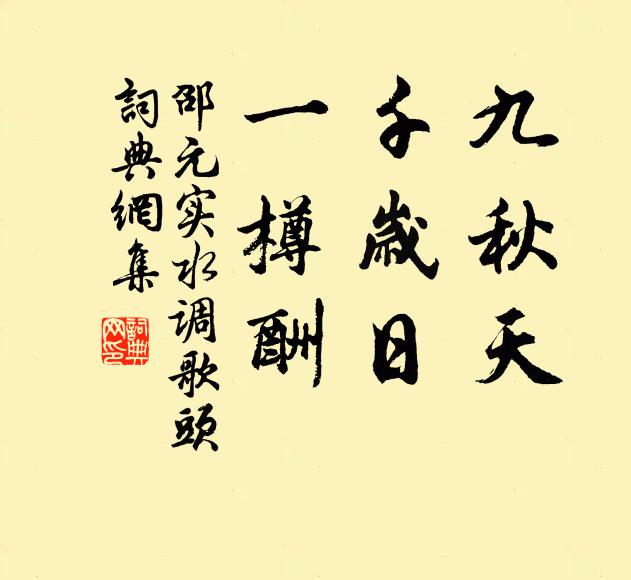 九秋天
千歲日
一樽酬
邵元实水调歌頭
詞典網集
詞典网印